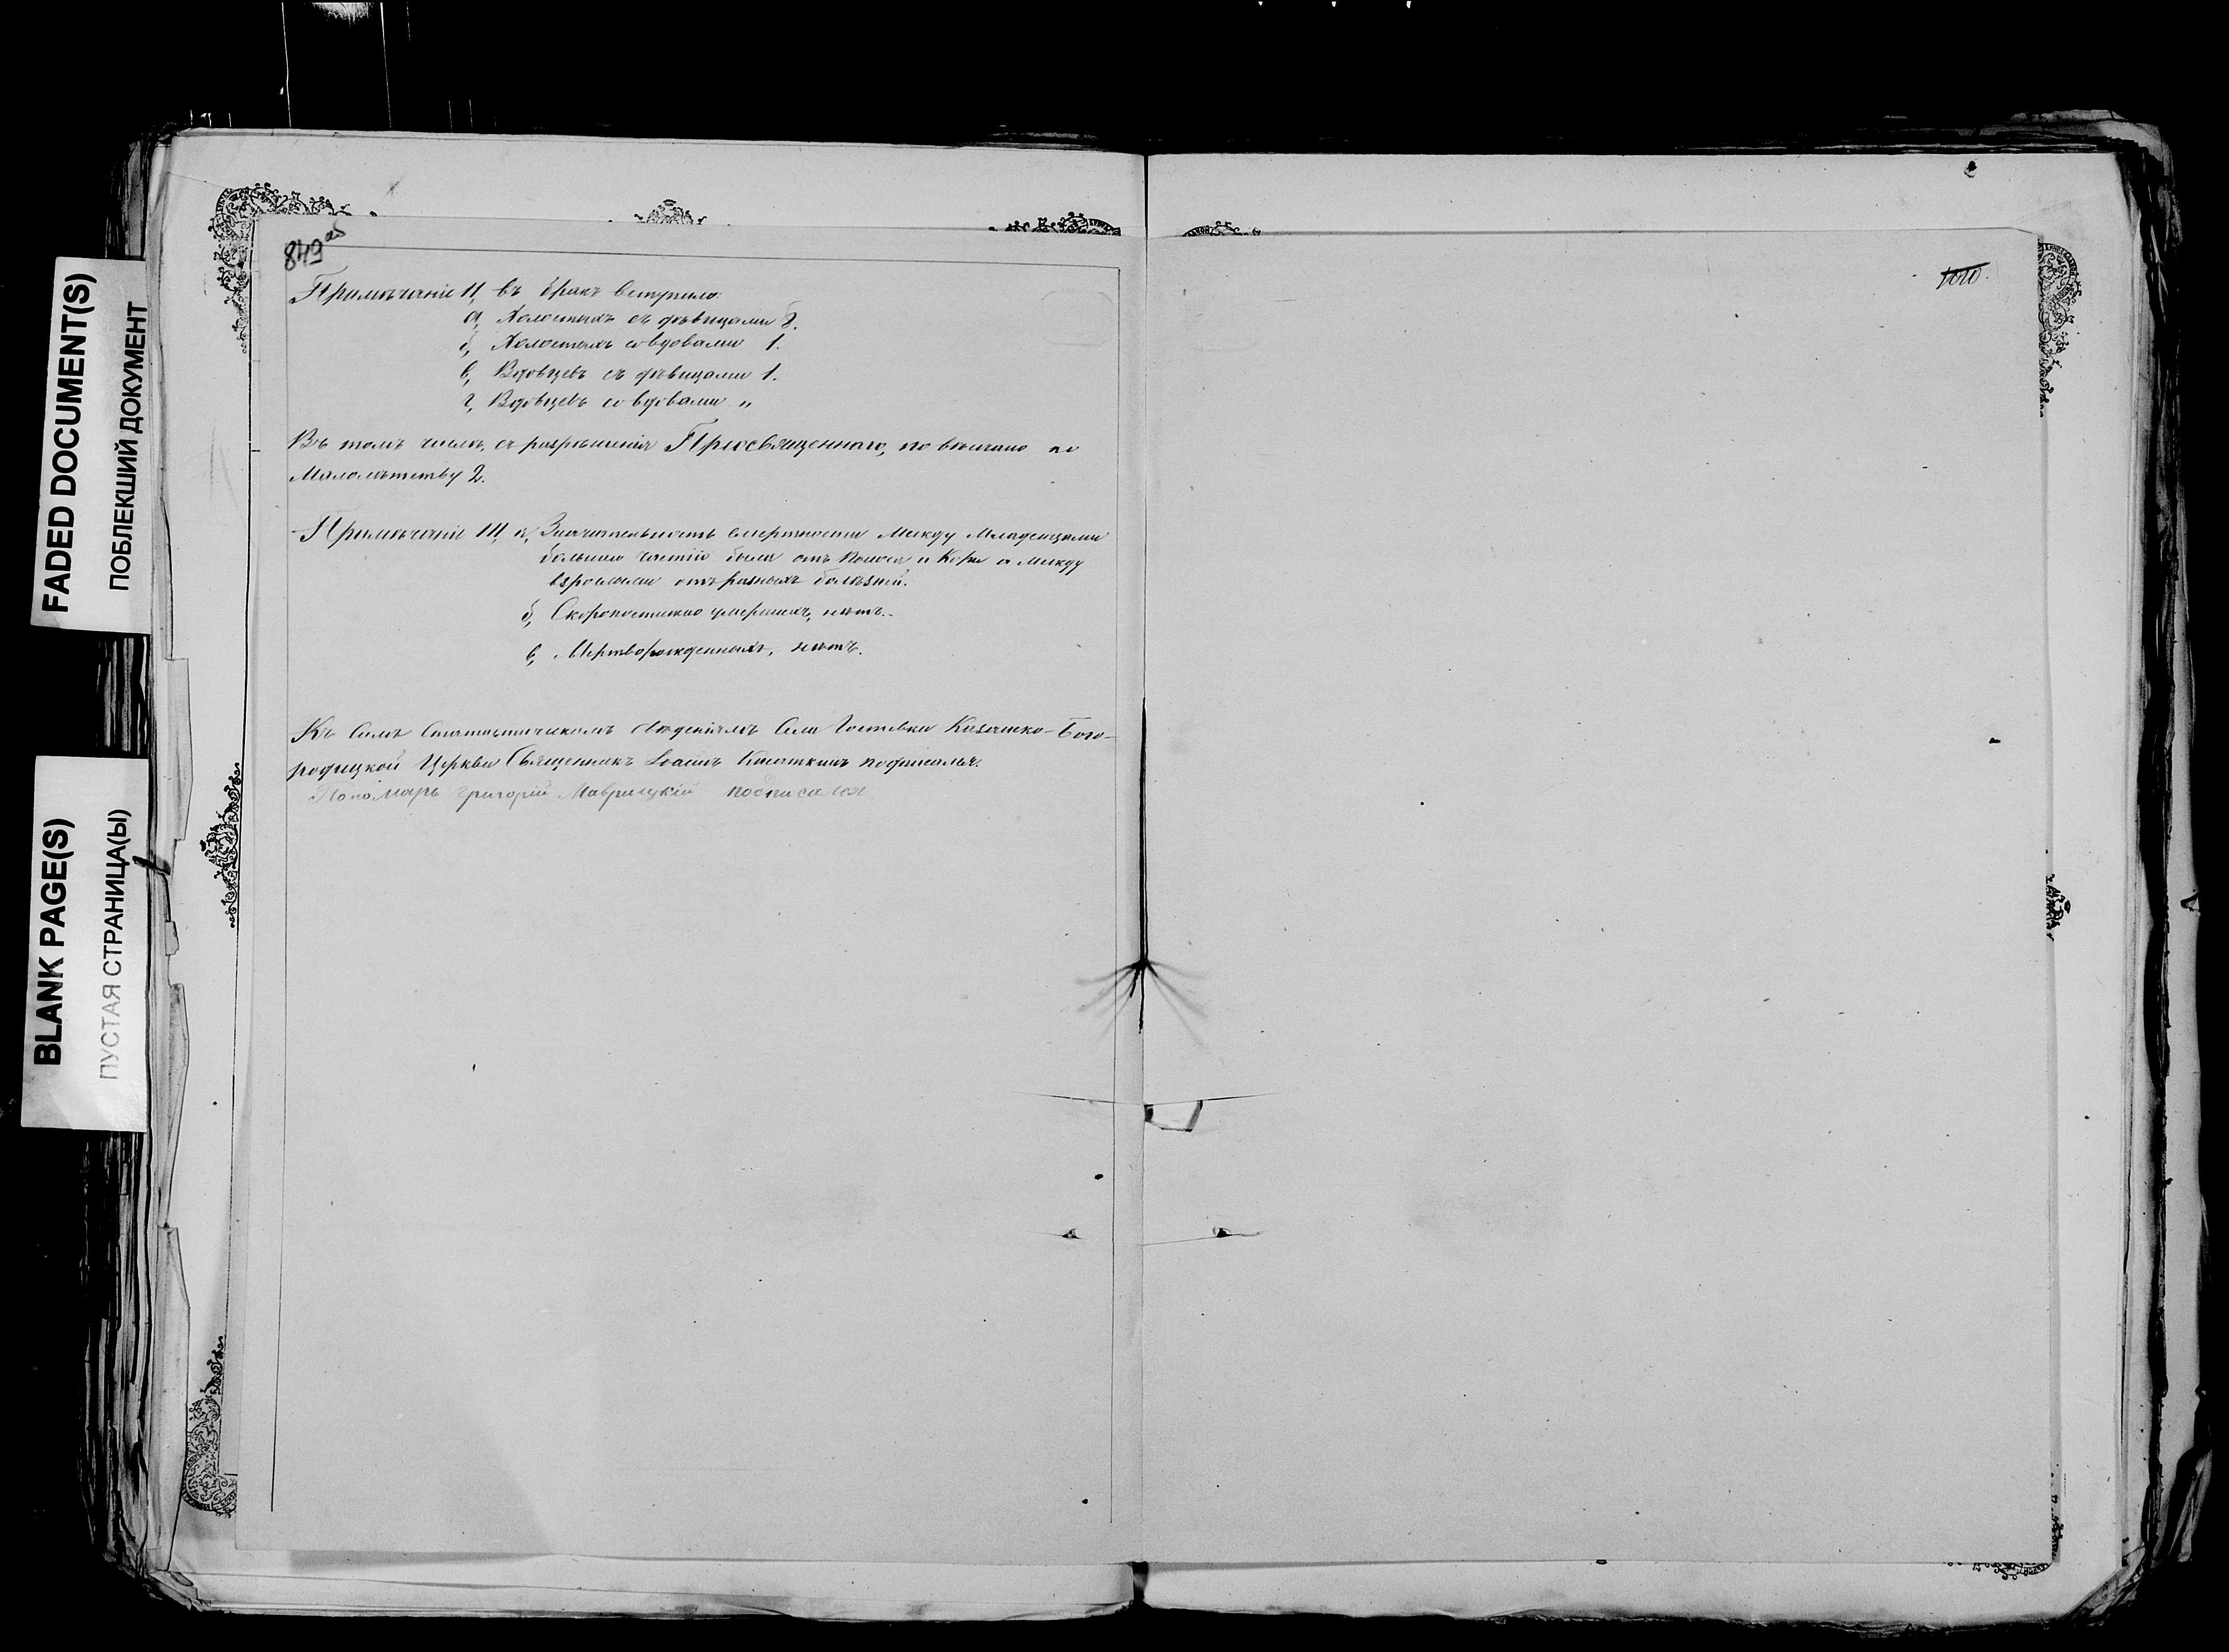 FADED DOCUMENT(S)
ПОБЛЕКШИЙ ДОКУМЕНТ
BLANK PAGE(S)
ПУСТАЯ СТРАНИЦА(Ы)
849 об
1010
Примѣчаніе II, въ бракъ вступило:
а, Холостыхъ съ дѣвицами 8.
б, Холостыхъ со вдовами 1.
в, Вдовцевъ съ дѣвицами 1.
г, Вдовцевъ со вдовами "
Въ томъ числѣ, съ разрѣшенія Преосвященнаго, повѣнчано по
Малолѣтству 2.
Примѣчаніе III, а, Значительность смертности Между Младенцами
большею частію была отъ Поноса и Кори а между
взрослыми отъ разныхъ болѣзней.
б, Скоропостижно умершихъ, нѣтъ.
в, Мертворожденныхъ, нѣтъ.
Къ Симъ Статистическимъ Свѣденіямъ Села Казанско-Бого-
родицкой Церкви Священникъ Іоаннъ подписался.
Пономарь Григорій Маврицкій подписался